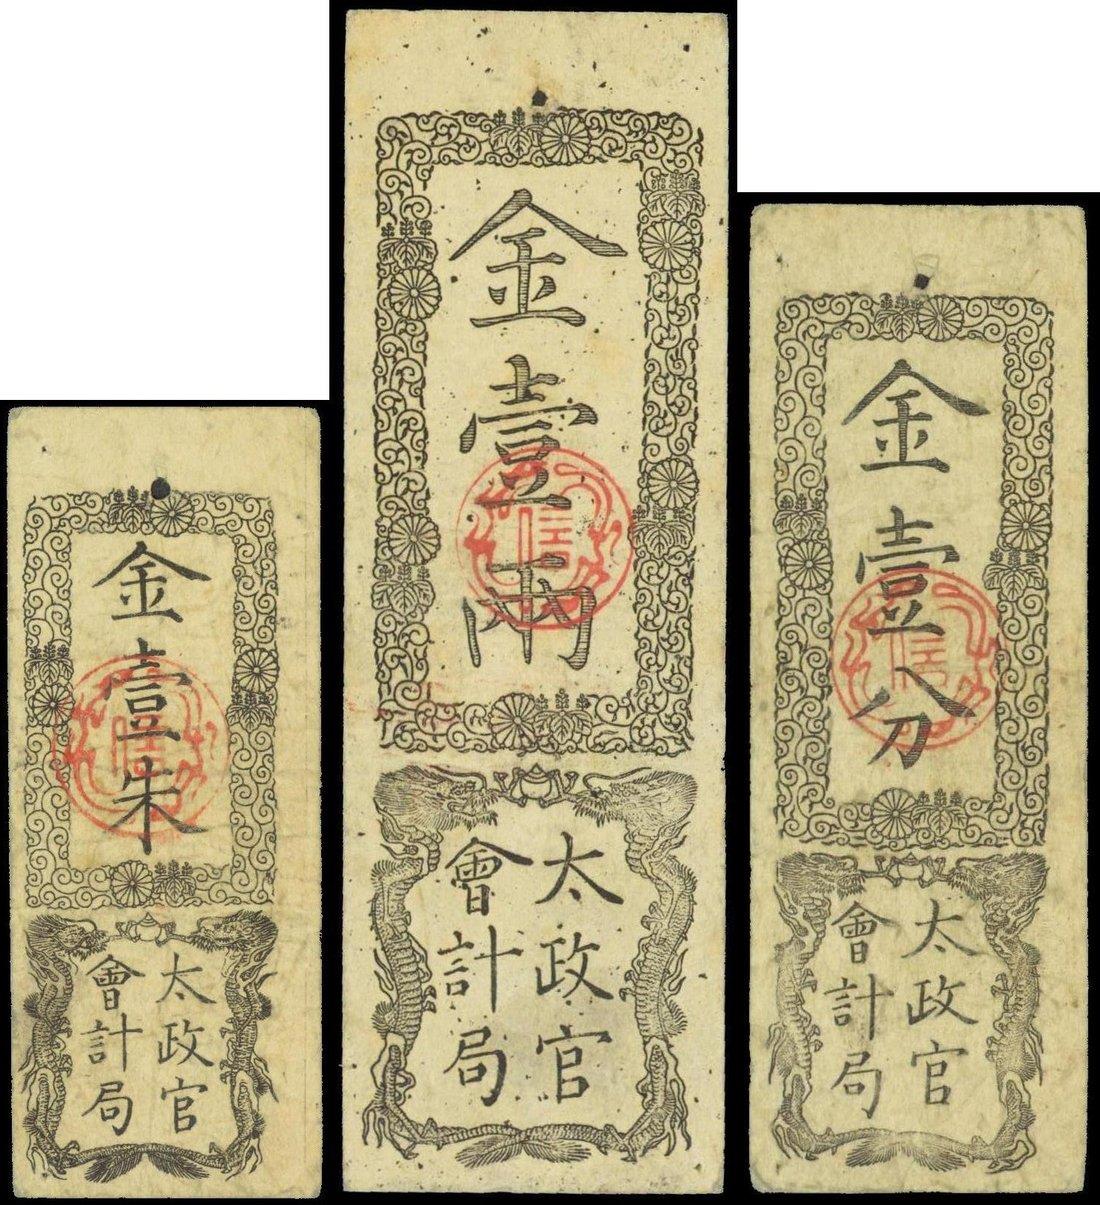 金壹朱
太政官
會計局
金壹兩
信
太政官
會計局
金壹分
信
太政官
會計局